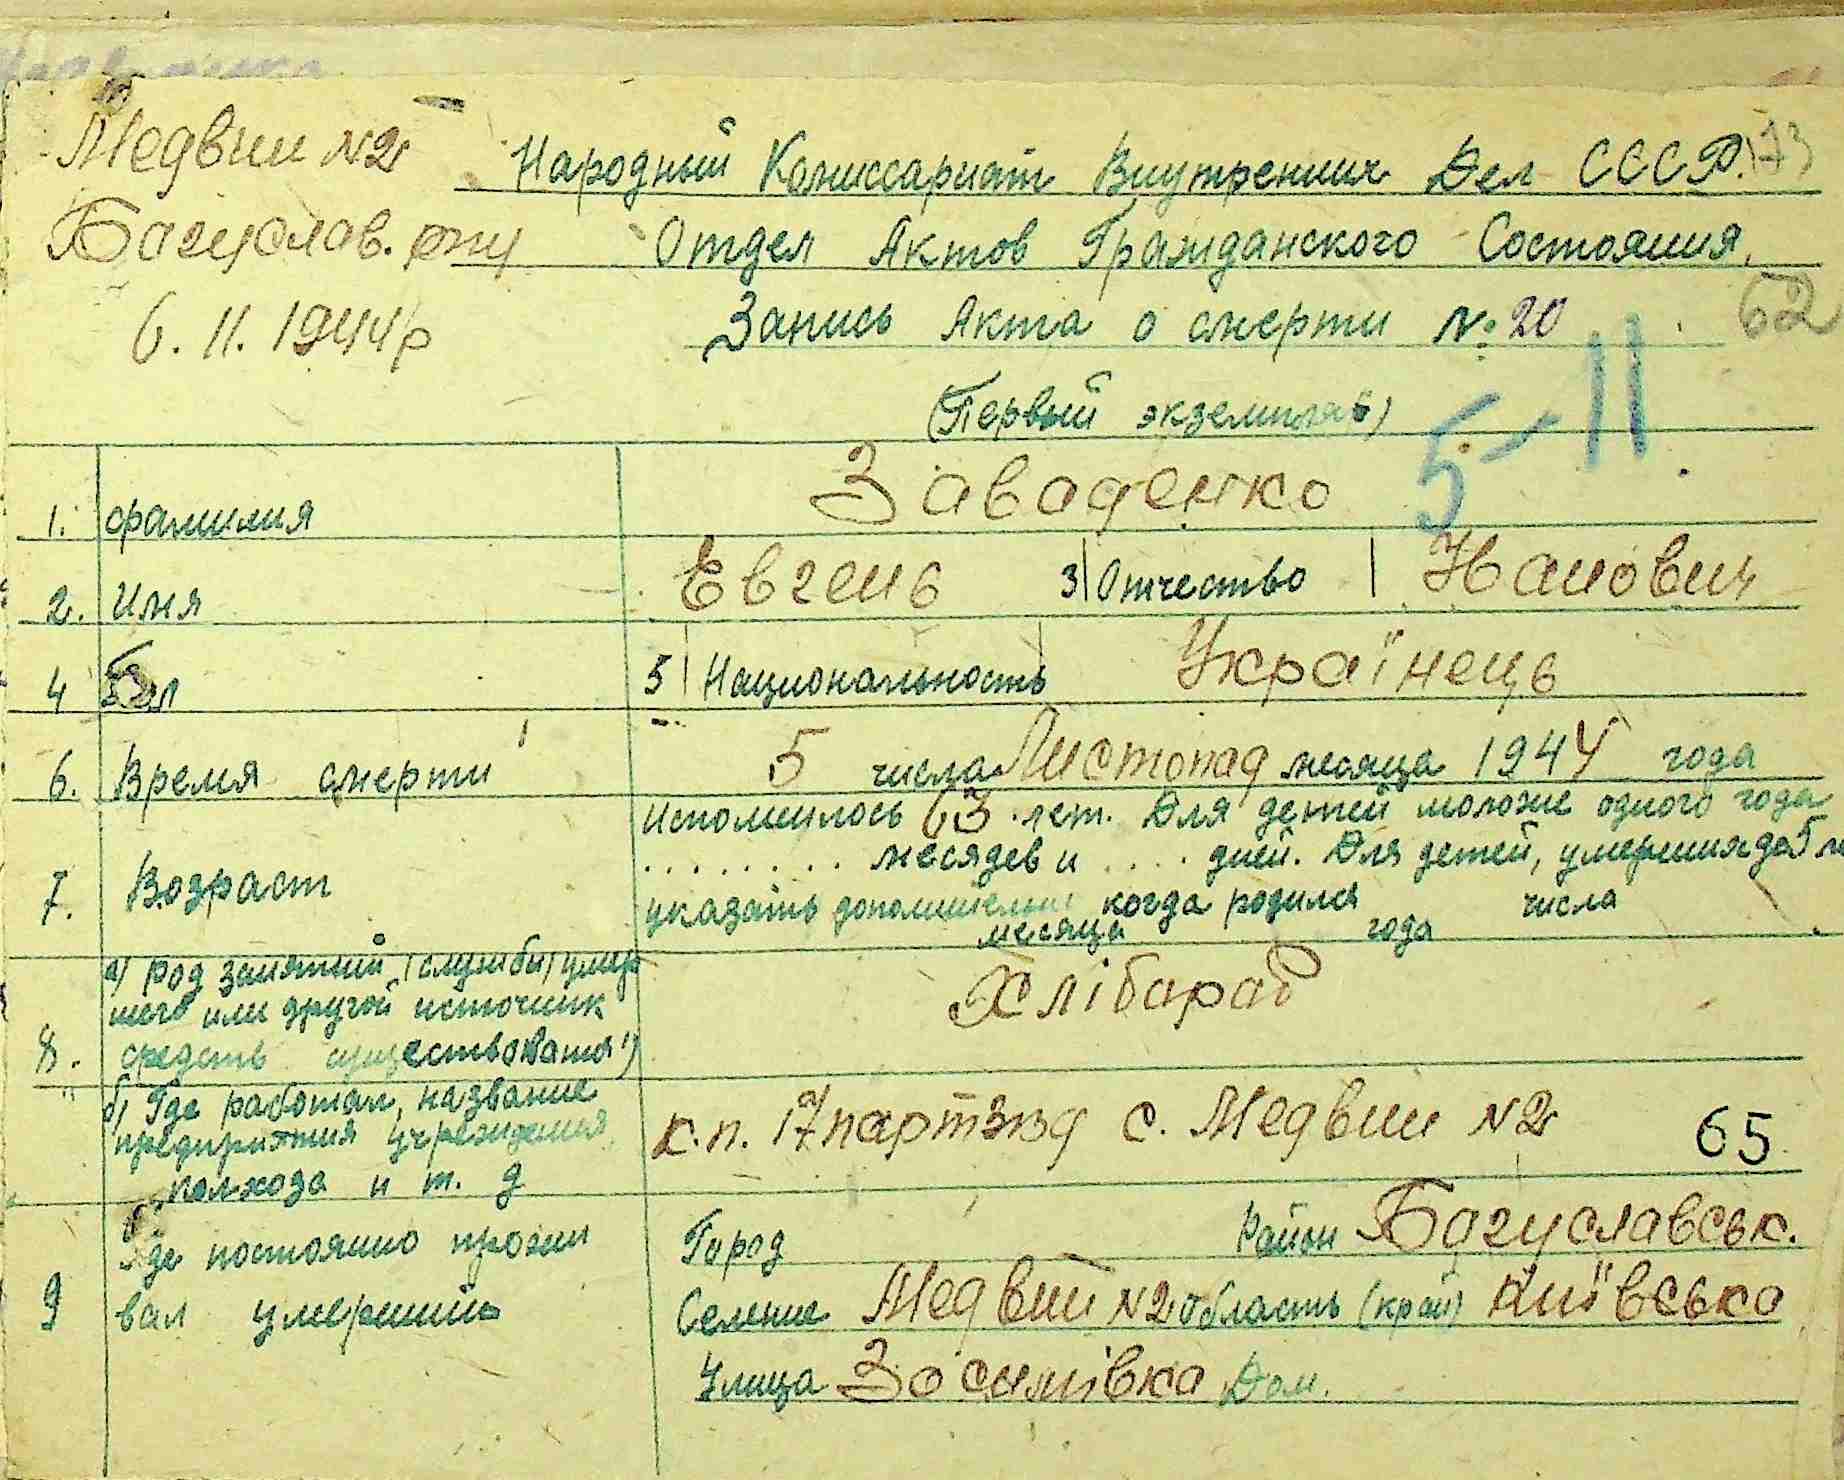 Медвин №2
Народный Комиссариат Внутренних Дел СССР.
173
Багуслав. р-ну
Отдел Актов Гражданского Состояния.
6.11.1944р
Запись Акта о смерти №20
62
(Первый экземпляр)
5-11
1. фамилия Заваденко
2. Имя Евгень 3 Отчество Іванович
4 Пол 5 Национальность Українець
6. Время смерти 5 числа Листопад месяца 1944 года
7. Возраст
Исполнилось 63 лет. Для детей моложе одного года
......... месяцев и .... дней. Для детей, умерших до 5 л
указать дополнительно когда родился числа
месяца года
8. а) род занятий (службы) умер
шего или другой источник
средств существования) Хлібароб
б) Где работал, название
предприятия учреждения
колхоза и т. д
к.п. 17 партзізд с. Медвин №2 65
9 Где постоянно прожи
вал умерший
Город Район Багуславськ.
Селение Медвин №2 Область (край) Київська
Улица Зосимівка Дом.